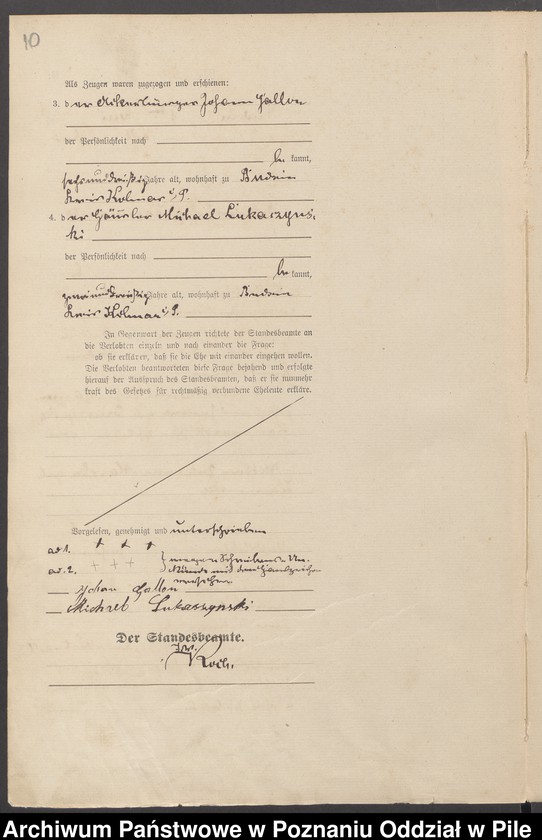 10
Als Zeugen waren zugezogen und erschienen:
3. der Ackerbürger Johann Gallon
der Persönlichkeit nach
be kannt,
sechsunddreißig Jahre alt, wohnhaft zu Budsin
Kreis Kolmar i/P.
4. der Häusler Michael Lukaszyns-
ki
der Persönlichkeit nach
be kannt,
zweiunddreißig Jahre alt, wohnhaft zu Budsin
Kreis Kolmar i/P.
In Gegenwart der Zeugen richtete der Standesbeamte an
die Verlobten einzeln und nach einander die Frage:
ob sie erklären, daß sie die Ehe mit einander eingehen wollen.
Die Verlobten beantworteten diese Frage bejahend und erfolgte
hierauf der Ausspruch des Standesbeamten, daß er sie nunmehr
kraft des Gesetzes für rechtmäßig verbundene Eheleute erkläre.
Vorgelesen, genehmigt und unterschrieben
ad 1. + + +
ad. 2. + + + wegen Schreibens-Un-
kunde mit dem Handzeichen
versehen.
Johan Gallon
Michael Lukaszynski
Der Standesbeamte.
Koch.
Archiwum Państwowe w Poznaniu Oddział w Pile